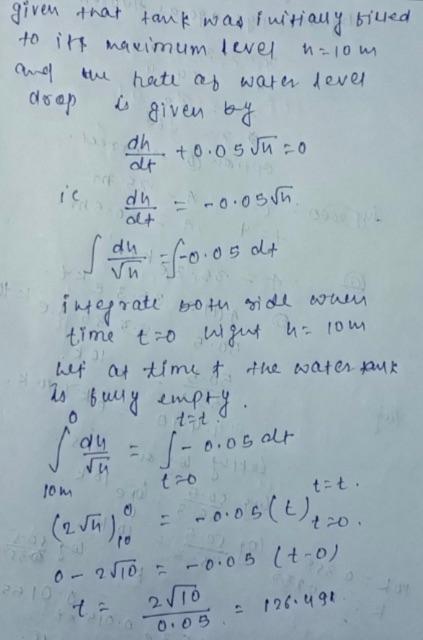 given that tank was initially filled
to its maximum level h=10m
and the rate of water level
drop is given by
dh/dt + 0.05√h = 0
ie dh/dt = -0.05√h.
∫ dh/√h = ∫-0.05 dt
integrate both side when
time t=0 hight h= 10m
let at time t the water tank
is fully empty.
∫₁₀ₘ⁰ dh/√h = ∫ₜ₌₀ᵗ⁼ᵗ -0.05 dt
(2√h)₁₀⁰ = -0.05 (t)ₜ₌₀ᵗ⁼ᵗ.
0 - 2√10 = -0.05 (t-0)
t = 2√10/0.05 = 126.491